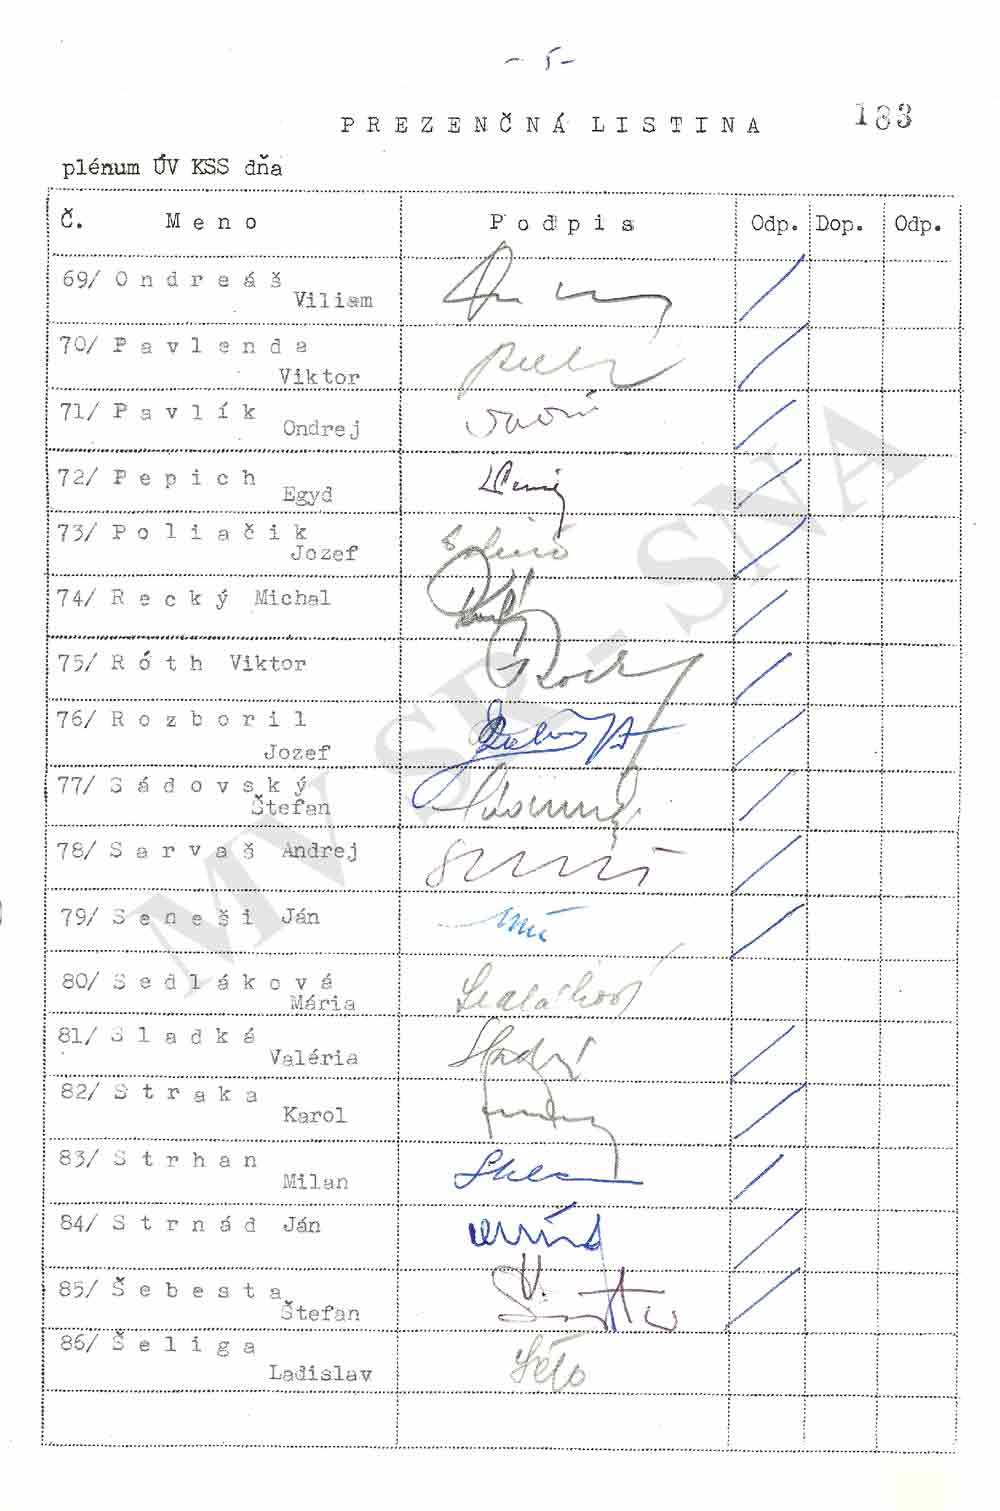 - 5 -
PREZENČNÁ LISTINA 183
plénum ÚV KSS dňa
Č. Meno Podpis Odp. Dop. Odp.
69/ Ondreáš
Viliam
70/ Pavlenda
Viktor
71/ Pavlík
Ondrej
72/ Pepich
Egyd
73/ Poliačik
Jozef
74/ Recký Michal
75/ Róth Viktor
76/ Rozboril
Jozef
77/ Sádovský
Štefan
78/ Sarvaš Andrej
79/ Seneši Ján
80/ Sedláková
Mária
81/ Sladká
Valéria
82/ Straka
Karol
83/ Strhan
Milan
84/ Strnád Ján
85/ Šebesta
Štefan
86/ Šeliga
Ladislav
MV SR - SNA